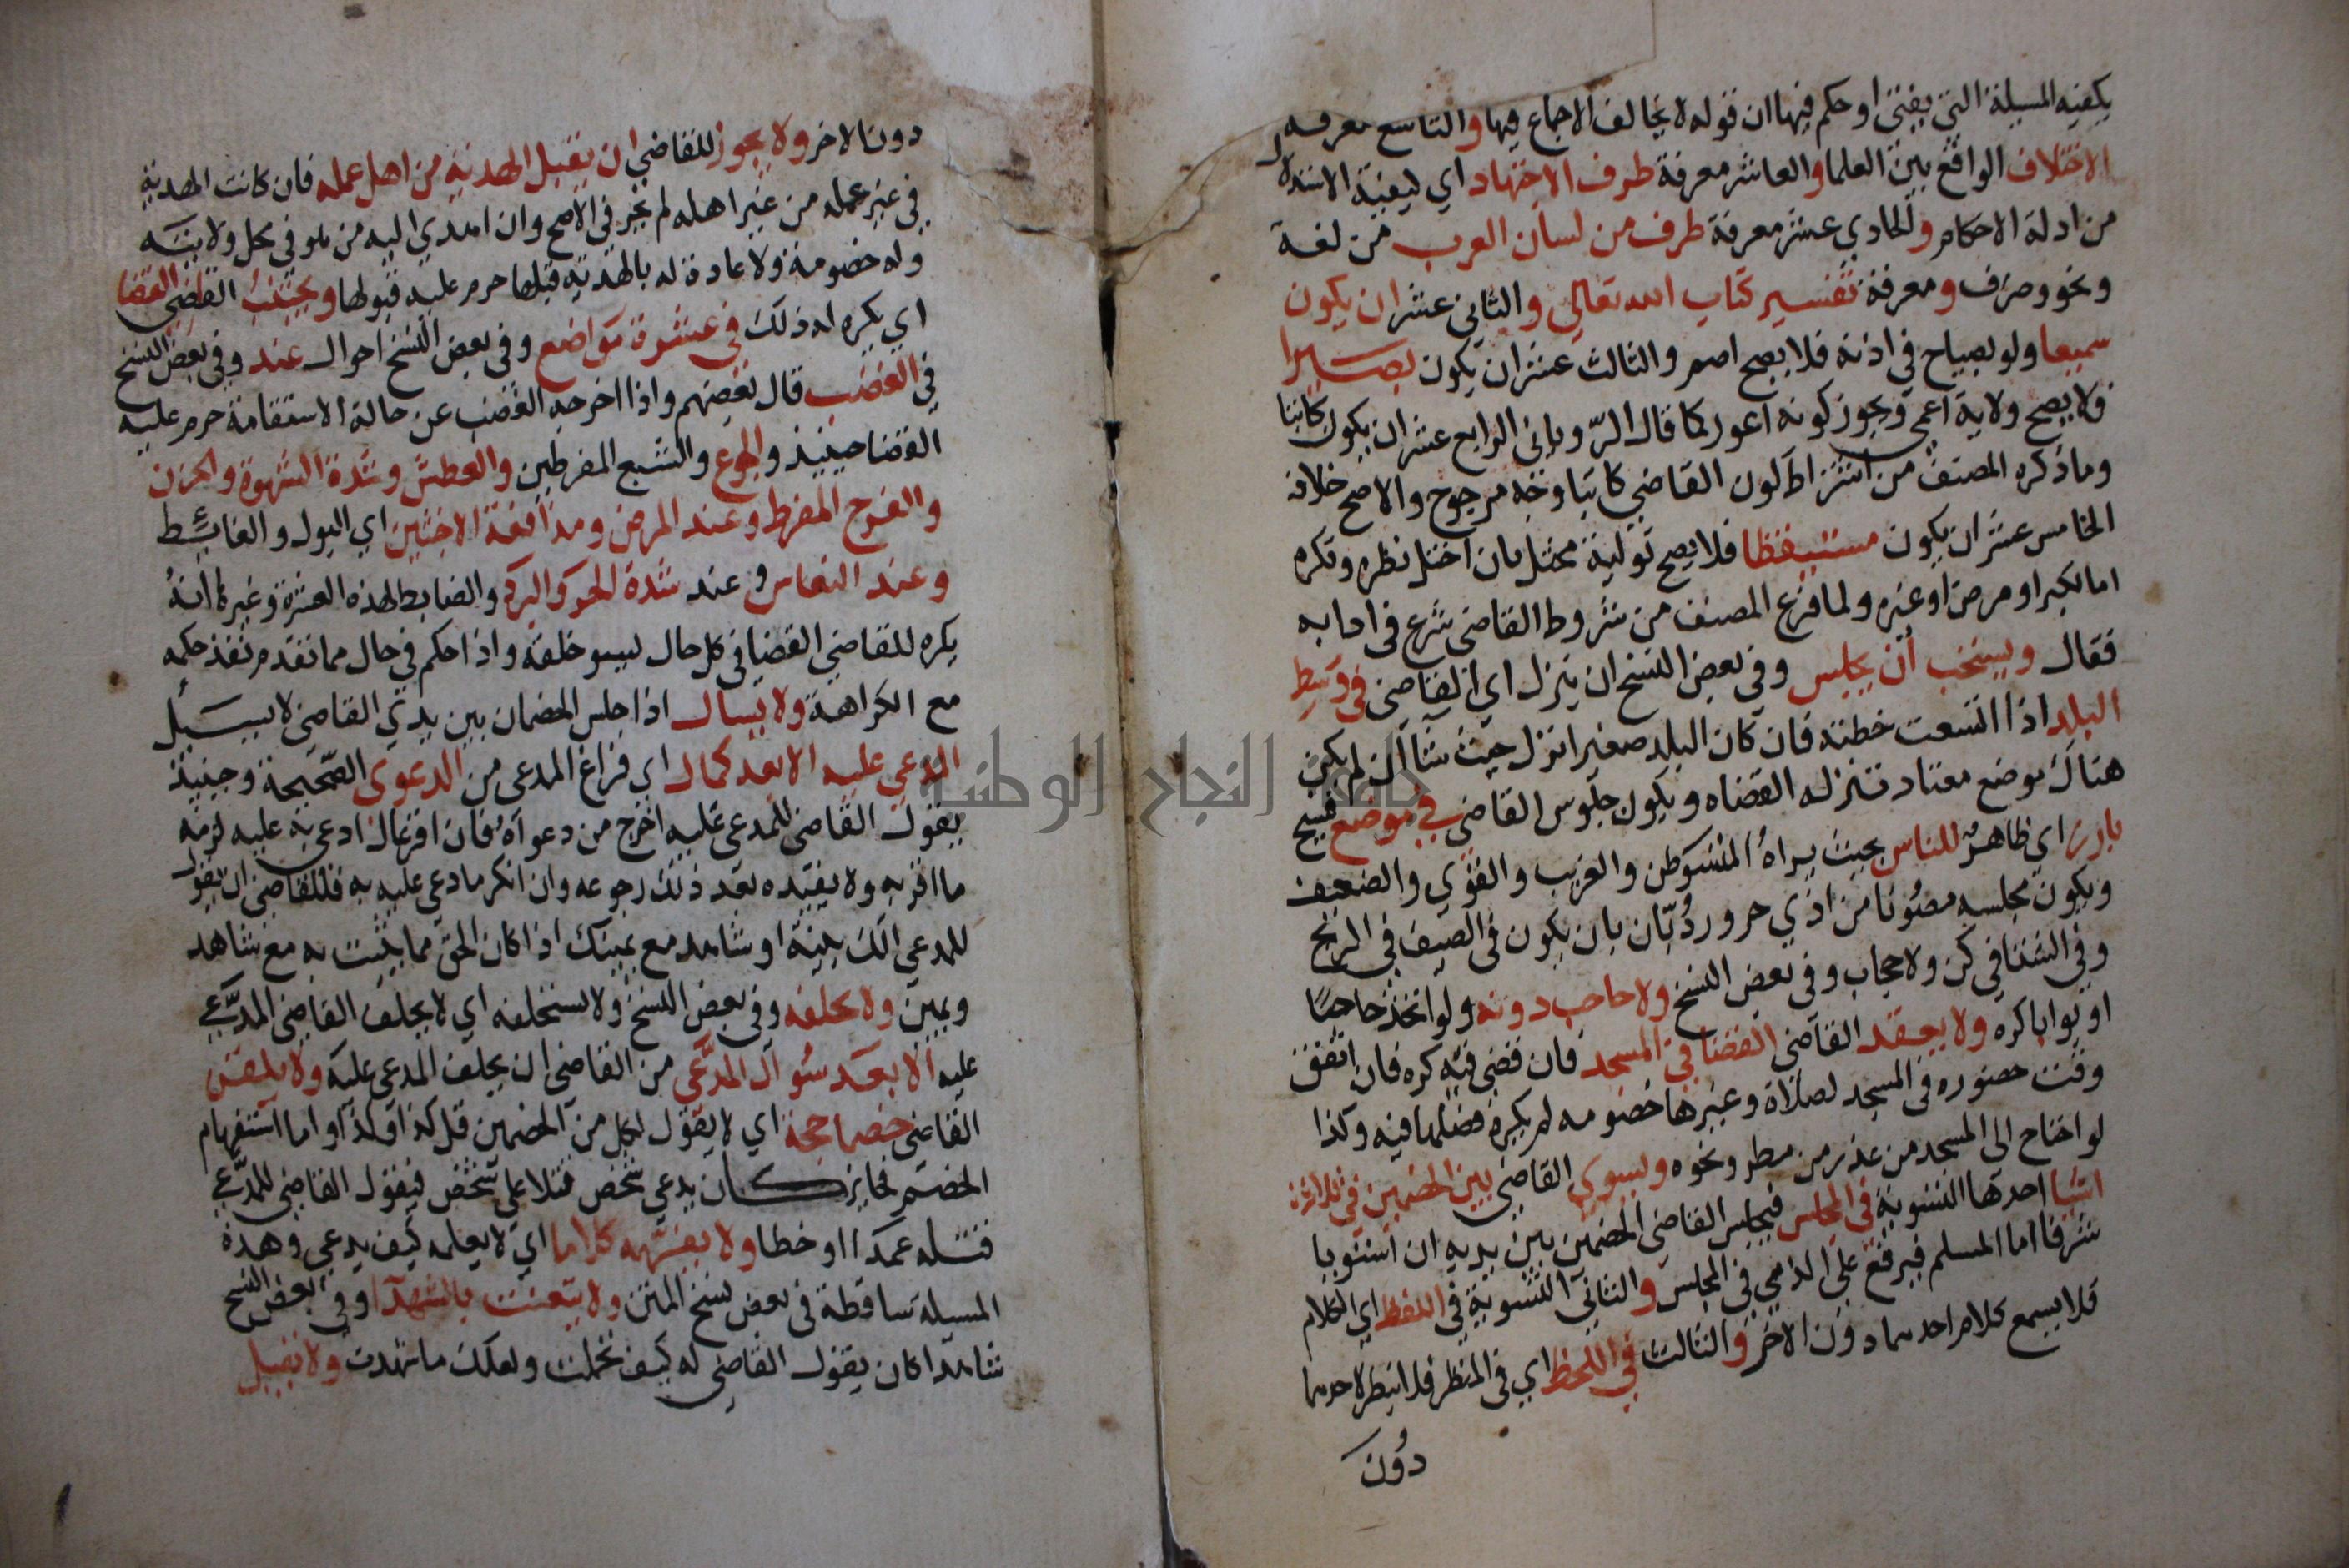 يكفيه المسيلة التي يفتي او حكم فيها ان قوله لا يخالف الاجماع فيها والتاسع معرفة
الاختلاف الواقع بين العلما والعاشر معرفة طرف الاجتهاد اي كيفية الاستدلا
من ادلة الاحكام والحادي عشر معرفة طرف من لسان العرب من لغة
ونحو وصرف ومعرفة تفسير كتاب الله تعالي والثاني عشر ان يكون
سميعا ولو بصياح في اذنه فلا يصح اصم والثالث عشر ان يكون بصيرا
فلا يصح ولاية اعمي ويجوز كونه اعور كما قال الروياني الرابع عشر ان يكون كاتبا
وما ذكره المصنف من اشتراط كون القاضي كاتبا وجه مرجوح والاصح خلافه
الخامس عشر ان يكون مستيقظا فلا يصح تولية مختل بان اختل نظره وفكره
اما لكبر او مرض او غيره ولما فرغ المصنف من شروط القاضي شرع في ادابه
فقال ويستحب أن يجلس وفي بعض النسخ ان ينزل اي القاضي في وسط
البلد اذا اتسعت خطته فان كان البلد صغيرا نزل حيث شاا ان لم يكن
هناك موضع معتاد تنزله القضاه ويكون جلوس القاضي في موضع فسيح
بارز اي ظاهر للناس بحيث يراه المستوطن والغريب والقوي والضعيف
ويكون مجلسه مصونا من اذي حر وبرد بان يكون في الصيف في الريح
وفي الشتا في كن ولا حجاب وفي بعض النسخ ولا حاجب دونه ولو اتخذ حاجبا
او بوابا كره ولا يعقد القاضي القضا في المسجد فان قضى فيه كره فان اتفق
وقت حضوره في المسجد لصلاة وغيرها خصومه لم يكره فصلها فيه وكذا
لو احتاج الى المسجد من عذر من مطر ونحوه ويسوي القاضي بين الخصمين في ثلاثة
اشيا احدها التسوية في المجلس فيجلس القاضي الخصمين بين يديه ان استويا
شرفا اما المسلم فيرفع على الذمي في المجلس والثاني التسوية في اللفظ اي الكلام
فلا يسمع كلام احدهما دون الاخر والثالث في اللحظ اي في النظر فلا ينظر لاحدهما
دون
دون الاخر ولا يجوز للقاضي ان يقبل الهدية من اهل عمله فان كانت الهدية
في غير عمله من غير اهله لم يحرم في الاصح وان اهدي اليه من هو في محل ولايته
وله خصومة ولا عادة له بالهدية قبلها حرم عليه قبولها ويجتنب القاضي القضا
اي يكره له ذلك في عشرة مواضع وفي بعض النسخ احوال عند وفي بعض النسخ
في الغضب قال بعضهم واذا اخرجه الغضب عن حالة الاستقامة حرم عليه
القضا حينيذ والجوع والشبع المفرطين والعطش وشدة الشهوة والحزن
والفرح المفرط وعند المرض ومدافعة الاخبثين اي البول والغائط
وعند النعاس وعند شدة الحر والبرد والضابط لهذه العشرة وغيرها انه
يكره للقاضي القضا في كل حال يسو خلقه واذا حكم في حال مما تقدم نفذ حكمه
مع الكراهة ولا يسال اذا جلس الخصمان بين يدي القاضي لا يسيل
المدعي عليه الا بعد كمال اي فراغ المدعي من الدعوى الصحيحة وحينية
يقول القاضي للمدعى عليه اخرج من دعواه فان اقر بما ادعي به عليه لزمه
ما اقر به ولا يفيده بعد ذلك رجوعه وان انكر ما دعي عليه به فللقاضي ان يقول
للمدعي الك بينة او شاهد مع يمينك اذا كان الحق مما يثبت به مع شاهد
ويمين ولا يحلفه وفي بعض النسخ ولا يستحلفه اي لا يحلف القاضي المدعي
عليه الا بعد سوال المدعي من القاضي ان يحلف المدعي عليه ولا يلقن
القاضي خصما حجة اي لا يقول لكل من الخصمين قل كذا او كذا او اما استفهام
الخصم فجايز كان يدعي شخص قتلا على شخص فيقول القاضي للمدعي
قتله عمدا او خطا ولا يفهمه كلاما اي لا يعلمه كيف يدعي وهذه
المسيله ساقطة في بعض نسخ المتن ولا يتعنت بالشهدا وفي بعض النسخ
شاهدا كان يقول القاضي له كيف تحملت ولعلك ما شهدت ولا يقبل
جامعة النجاح الوطنية